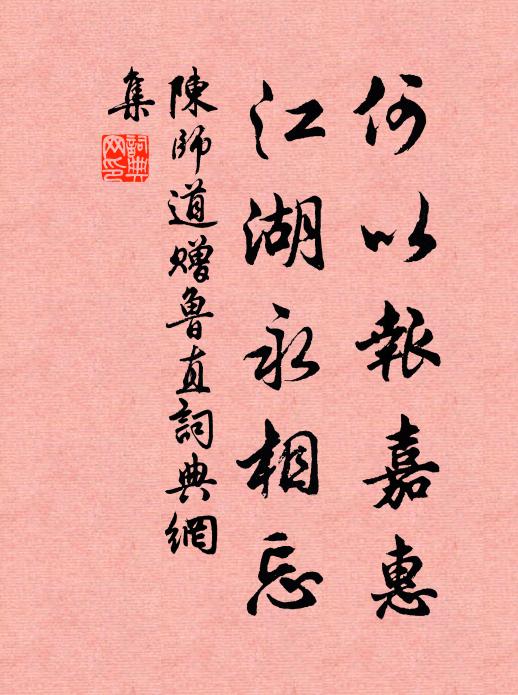 何以報嘉惠
江湖永相忘
陳師道贈魯直詞典網
集
詞典
网印